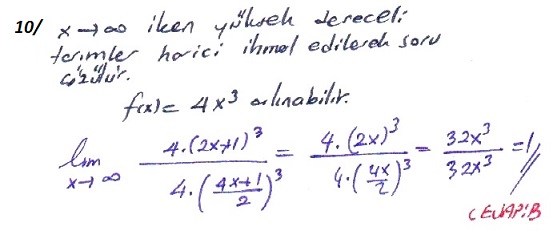 10/ x→∞ iken yüksek dereceli
terimler harici ihmal edilerek soru
çözülür.
f(x)= 4x³ alınabilir.
lim x→∞ 4.(2x+1)³ / 4.((4x+1)/2)³ = 4.(2x)³ / 4.(4x/2)³ = 32x³ / 32x³ = 1 //
CEVAP:B